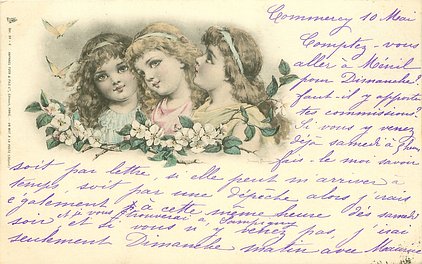 Commercy 10 Mai
Comptez-vous
aller à Ménil
pour Dimanche?
faut-il y apporter
tes commissions?
Si vous y venez
déjà samedi à
fais-le moi savoir
soit par lettre, si elle peut m'arriver à
temps, soit par une dépêche alors j'irais
également à cette même heure dès samedi
et je vous trouverai à
soir, et si vous n'y venez pas, j'irai
seulement Dimanche matin avec Maurice